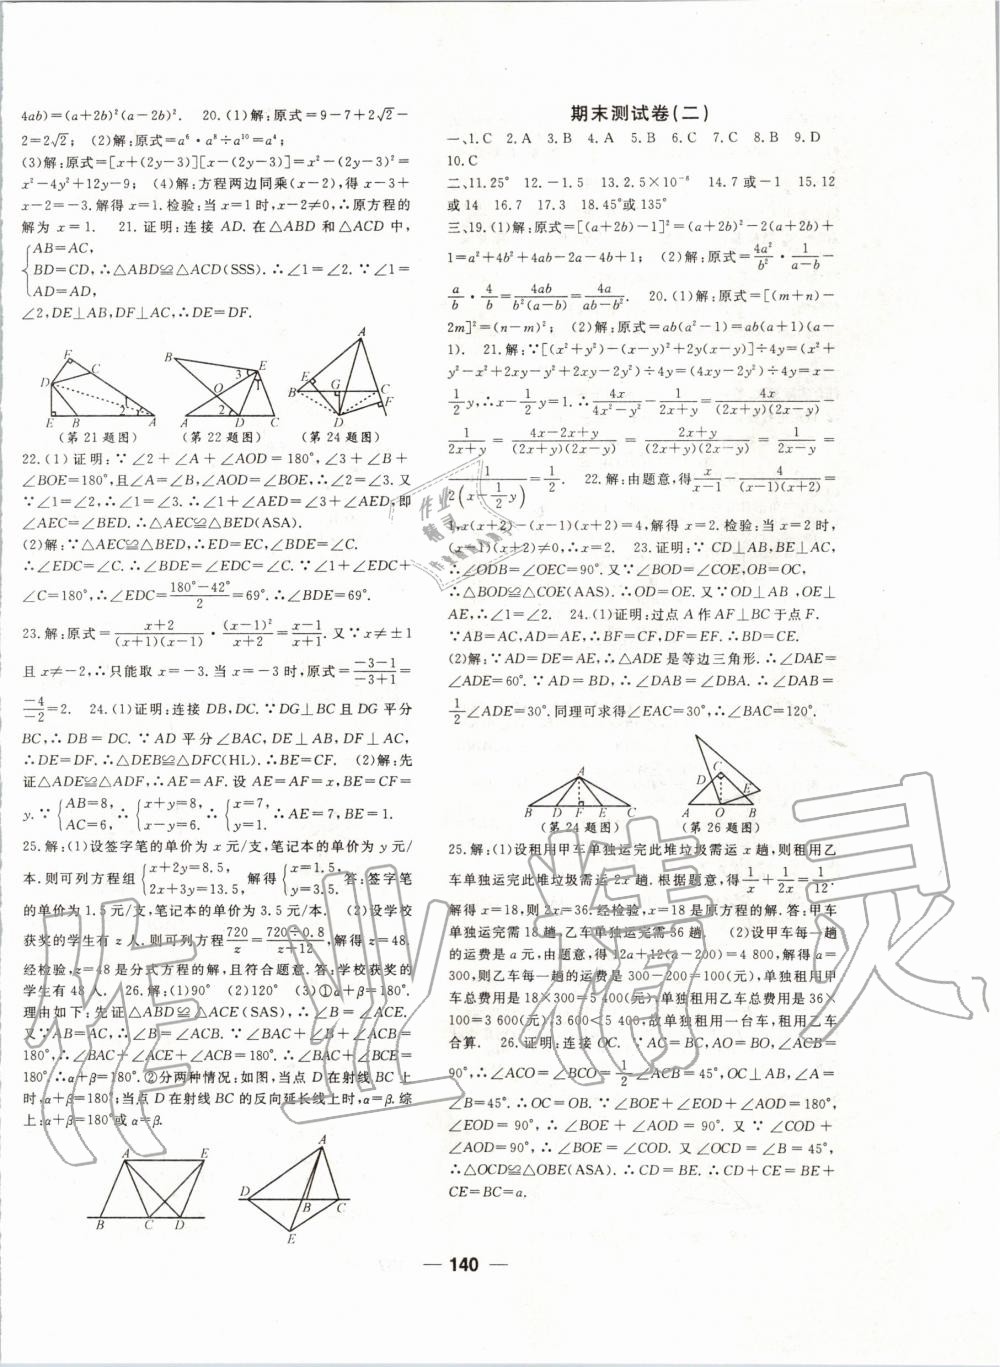 4ab)=(a+2b)²(a-2b)². 20.(1)解:原式=9-7+2√2-
2=2√2; (2)解:原式=a⁶·a⁸÷a¹⁰=a⁴;
(3)解:原式=[x+(2y-3)][x-(2y-3)]=x²-(2y-3)²=
x²-4y²+12y-9; (4)解:方程两边同乘(x-2),得 x-3+
x-2=-3.解得x=1.检验:当x=1时,x-2≠0,∴原方程的
解为 x=1. 21.证明:连接 AD.在△ABD 和△ACD 中,
{AB=AC,
BD=CD,∴△ABD≌△ACD(SSS).∴∠1=∠2.∵∠1=
AD=AD,
∠2,DE⊥AB,DF⊥AC,∴DE=DF.
F C D E B A 1 2
B E 3 1 O 2 A D C
A E G B C F D
(第21题图) (第22题图) (第24题图)
22.(1)证明:∵∠2+∠A+∠AOD=180°,∠3+∠B+
∠BOE=180°,且∠A=∠B,∠AOD=∠BOE,∴∠2=∠3.又
∵∠1=∠2,∴∠1=∠3.∴∠1+∠AED=∠3+∠AED,即
∠AEC=∠BED.∴△AEC≌△BED(ASA).
(2)解:∵△AEC≌△BED,∴ED=EC,∠BDE=∠C.
∴∠EDC=∠C.∴∠BDE=∠EDC=∠C.∵∠1+∠EDC+
∠C=180°,∴∠EDC=(180°-42°)/2=69°.∴∠BDE=69°.
23.解:原式=(x+2)/((x+1)(x-1))·(x-1)²/(x+2)=(x-1)/(x+1).又∵x≠±1
且x≠-2,∴只能取 x=-3.当 x=-3 时,原式=(-3-1)/(-3+1)=
-4/-2=2. 24.(1)证明:连接DB,DC.∵DG⊥BC且DG平分
BC,∴DB=DC.∵AD平分∠BAC,DE⊥AB,DF⊥AC,
∴DE=DF.∴△DEB≌△DFC(HL).∴BE=CF. (2)解:先
证△ADE≌△ADF,∴AE=AF.设 AE=AF=x,BE=CF=
y.∵{AB=8, AC=6,∴{x+y=8, x-y=6.∴{x=7, y=1.∴AE=7,BE=1.
25.解:(1)设签字笔的单价为 x元/支,笔记本的单价为 y元/
本.则可列方程组{x+2y=8.5, 2x+3y=13.5, 解得{x=1.5, y=3.5.答:签字笔
的单价为1.5元/支,笔记本的单价为3.5元/本. (2)设学校
获奖的学生有z人.则可列方程720/z=(720÷0.8)/(z+12),解得z=48.
经检验,z=48是分式方程的解,且符合题意.答:学校获奖的
学生有48人. 26.解:(1)90° (2)120° (3)①α+β=180°.
理由如下:先证△ABD≌△ACE(SAS),∴∠B=∠ACE.
又∵AB=AC,∴∠B=∠ACB.∵∠BAC+∠B+∠ACB=
180°,∴∠BAC+∠ACE+∠ACB=180°.∴∠BAC+∠BCE=
180°.∴α+β=180°.②分两种情况:如图,当点 D在射线BC上
时,α+β=180°;当点D在射线BC的反向延长线上时,α=β.综
上:α+β=180°或α=β.
A E B C D
A D B C E
期末测试卷(二)
一、1.C 2.A 3.B 4.A 5.B 6.C 7.C 8.B 9.D
10.C
二、11.25° 12.-1.5 13.2.5×10⁻⁶ 14.7或-1 15.12
或14 16.7 17.3 18.45°或135°
三、19.(1)解:原式=[(a+2b)-1]²=(a+2b)²-2(a+2b)+
1=a²+4b²+4ab-2a-4b+1; (2)解:原式=4a²/b²·1/(a-b)-
a/b·4/b=4ab/(b²(a-b))=4a/(ab-b²). 20.(1)解:原式=[(m+n)-
2m]²=(n-m)²; (2)解:原式=ab(a²-1)=ab(a+1)(a-
1). 21.解:∵[(x²+y²)-(x-y)²+2y(x-y)]÷4y=(x²+
y²-x²+2xy-y²+2xy-2y²)÷4y=(4xy-2y²)÷4y=x-
1/2y,∴x-1/2y=1.∴4x/(4x²-y²)-1/(2x+y)=4x/((2x+y)(2x-y))-
1/(2x+y)=(4x-2x+y)/((2x+y)(2x-y))=(2x+y)/((2x+y)(2x-y))=1/(2x-y)=
1/(2(x-1/2y))=1/2. 22.解:由题意,得x/(x-1)-4/((x-1)(x+2))=
1,x(x+2)-(x-1)(x+2)=4,解得x=2.检验:当x=2时,
(x-1)(x+2)≠0,∴x=2. 23.证明:∵CD⊥AB,BE⊥AC,
∴∠ODB=∠OEC=90°.又∵∠BOD=∠COE,OB=OC,
∴△BOD≌△COE(AAS).∴OD=OE.又∵OD⊥AB,OE⊥
AE,∴∠1=∠2. 24.(1)证明:过点A作AF⊥BC于点F.
∵AB=AC,AD=AE,∴BF=CF,DF=EF.∴BD=CE.
(2)解:∵AD=DE=AE,∴△ADE是等边三角形.∴∠DAE=
∠ADE=60°.∵AD=BD,∴∠DAB=∠DBA.∴∠DAB=
1/2∠ADE=30°.同理可求得∠EAC=30°,∴∠BAC=120°.
A B D F E C
D C E A O B
(第24题图) (第26题图)
25.解:(1)设租用甲车单独运完此堆垃圾需运 x 趟,则租用乙
车单独运完此堆垃圾需运2x趟.根据题意,得1/x+1/2x=1/12.
解得x=18,则2x=36.经检验,x=18是原方程的解.答:甲车
单独运完需18趟,乙车单独运完需36趟. (2)设甲车每一趟
的运费是a元,由题意,得12a+12(a-200)=4 800,解得a=
300,则乙车每一趟的运费是300-200=100(元),单独租用甲
车总费用是18×300=5 400(元),单独租用乙车总费用是36×
100=3 600(元),3 600<5 400,故单独租用一台车,租用乙车
合算. 26.证明:连接 OC.∵AC=BC,AO=BO,∠ACB=
90°,∴∠ACO=∠BCO=1/2∠ACB=45°,OC⊥AB,∠A=
∠B=45°.∴OC=OB.∵∠BOE+∠EOD+∠AOD=180°,
∠EOD=90°,∴∠BOE+∠AOD=90°.又∵∠COD+
∠AOD=90°,∴∠BOE=∠COD.又∵∠OCD=∠B=45°,
∴△OCD≌△OBE(ASA).∴CD=BE.∴CD+CE=BE+
CE=BC=a.
— 140 —
作业精灵
作业
精灵